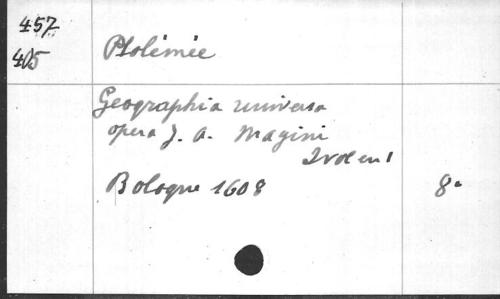 457
405
Ptolémée
Geographia universa
opera J. A. Magini
2 vol en 1
Bologne 1608
8°